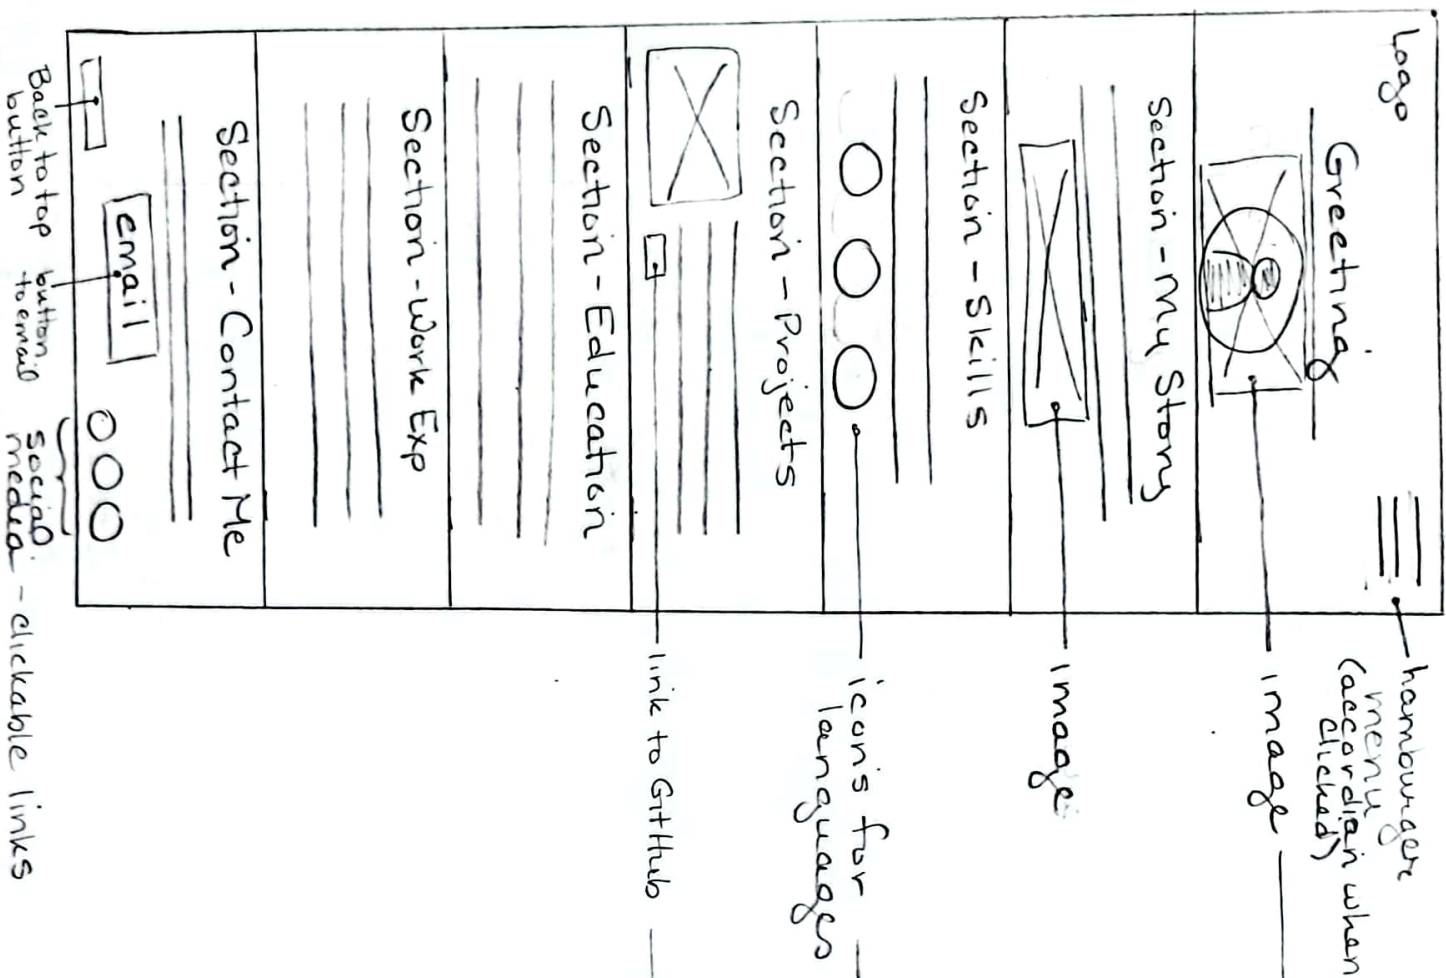 Logo
hamburger
menu
(accordian when
clicked)
Greeting
image
Section - My Story
image
Section - Skills
icons for
languages
Section - Projects
link to GitHub
Section - Education
Section - Work Exp
Section - Contact Me
email
Back to top
button
button
to email
social
media - clickable links